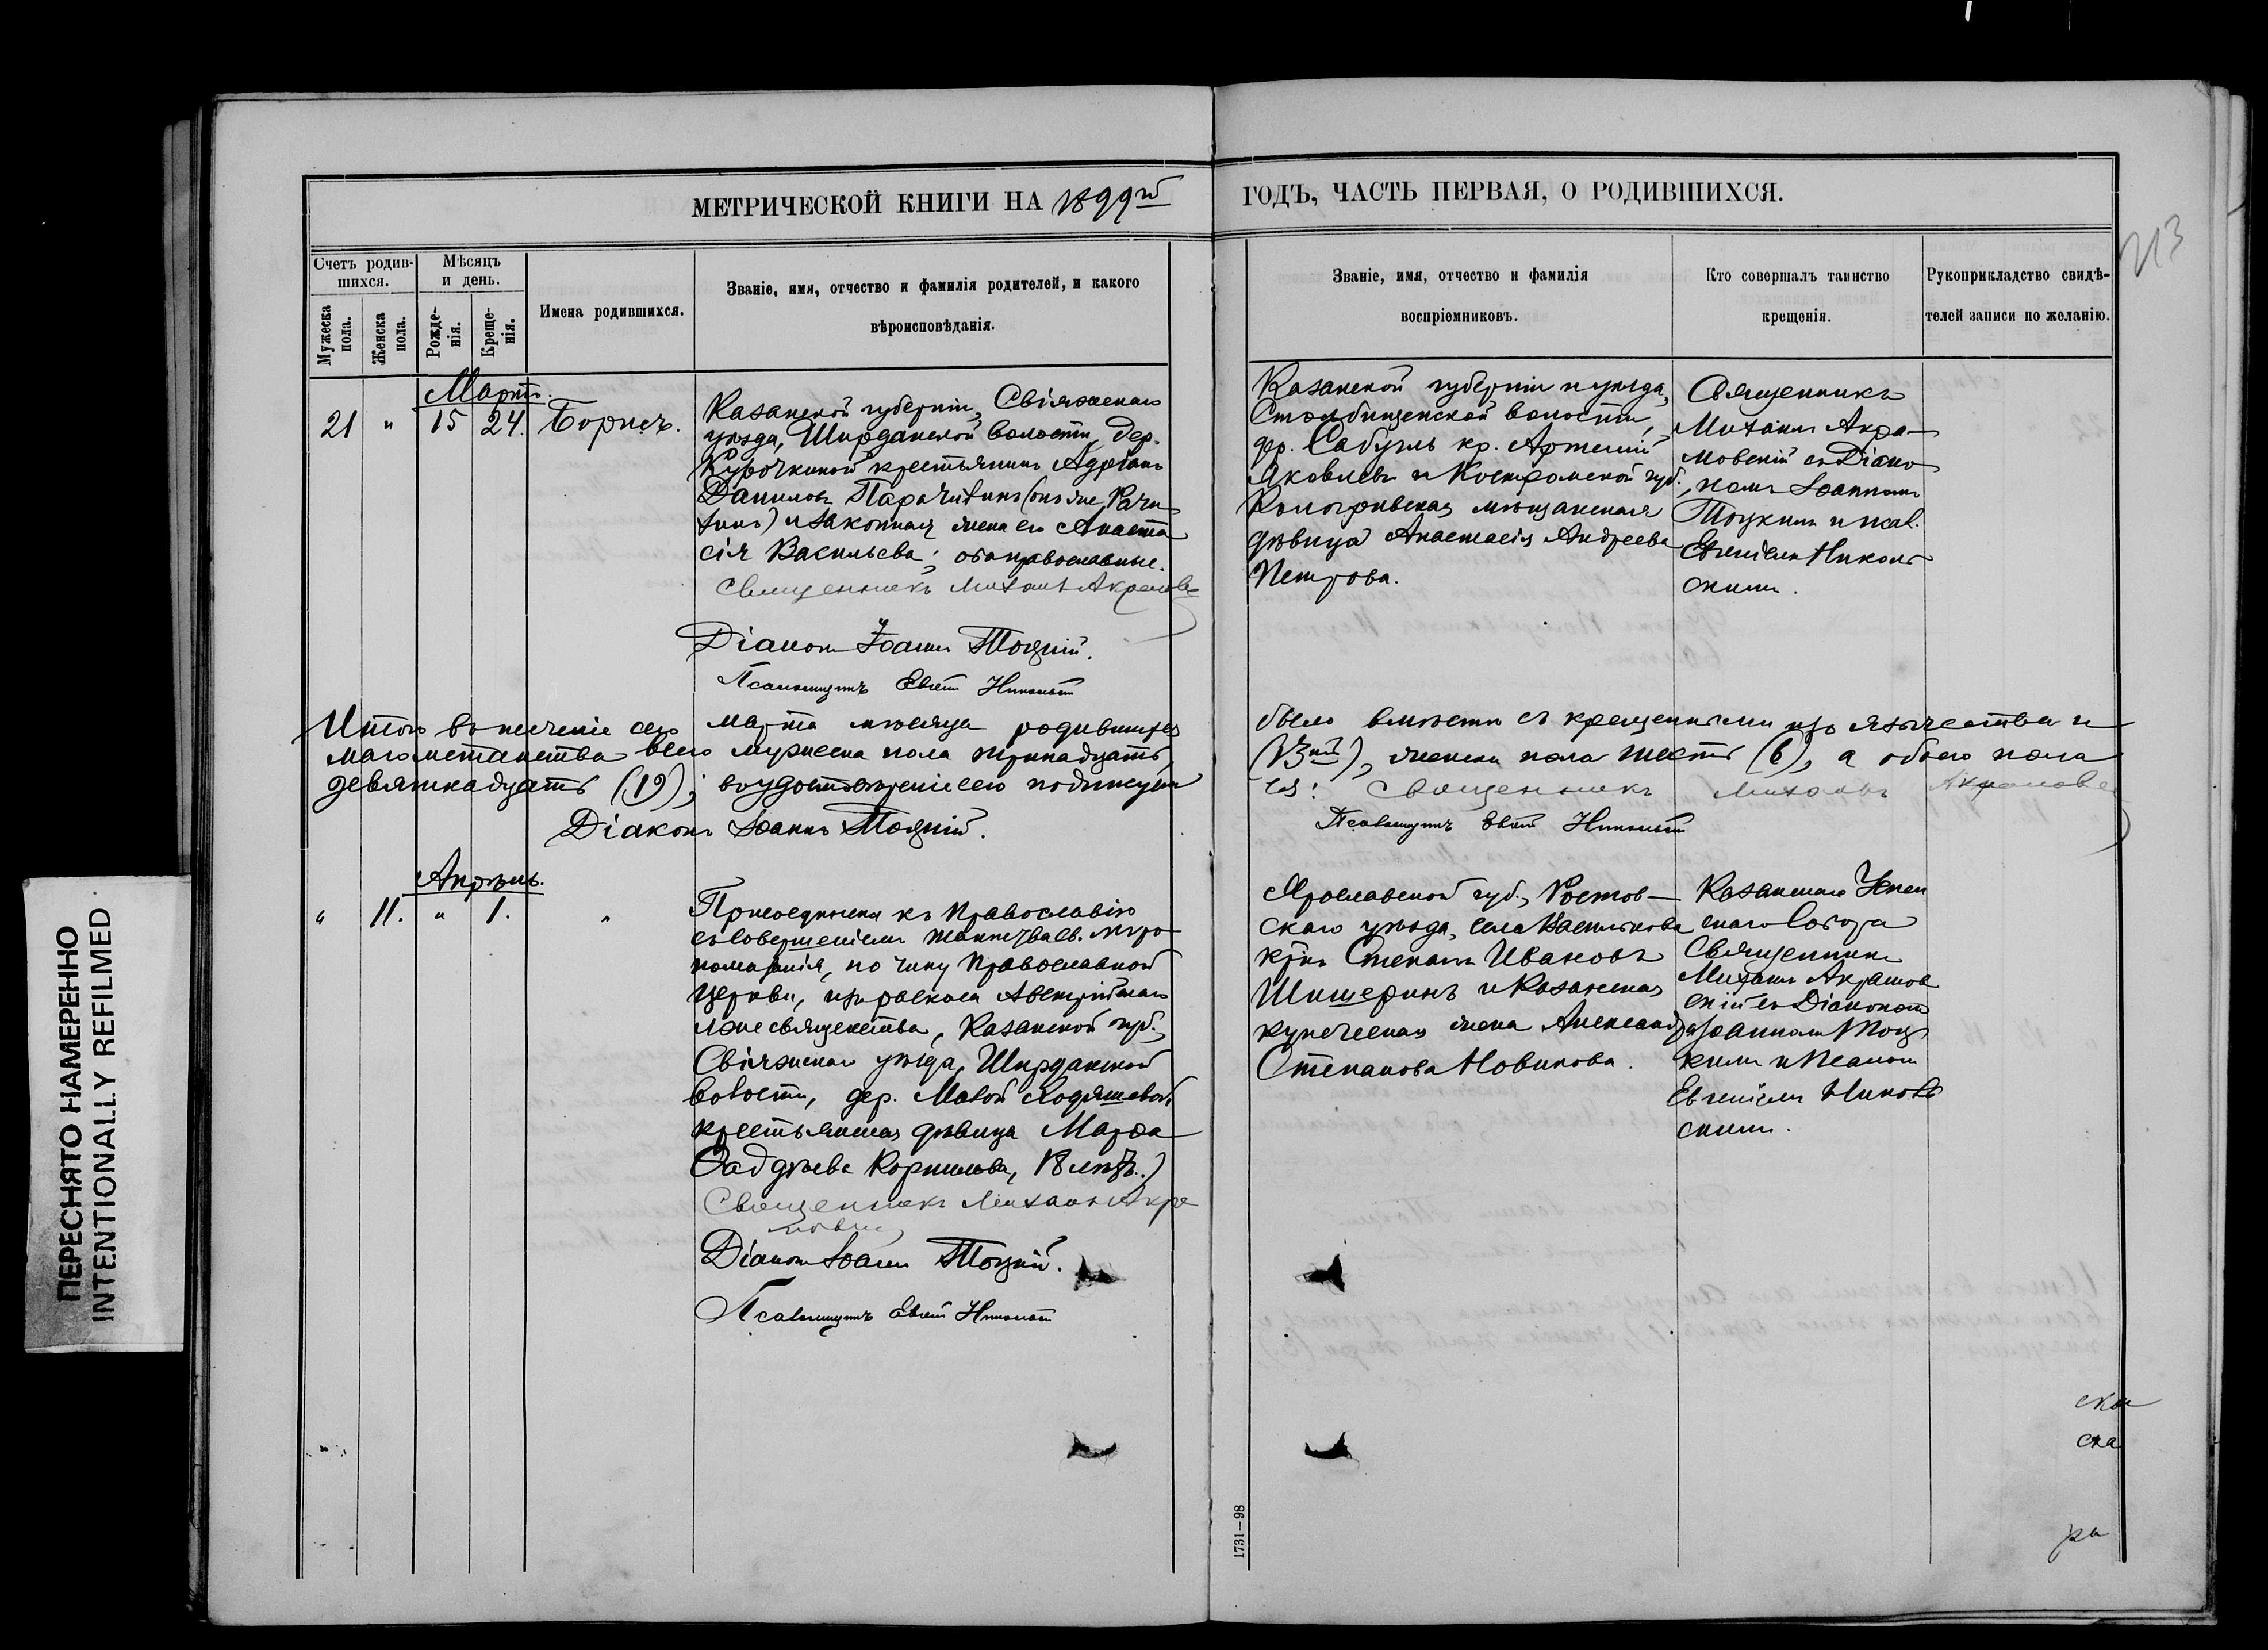 МЕТРИЧЕСКОЙ КНИГИ НА 1899й
ГОДЪ, ЧАСТЬ ПЕРВАЯ, О РОДИВШИХСЯ.
213
Счетъ родив-
шихся.
Мужеска
пола.
Женска
пола.
Мѣсяцъ
и день.
Рожде-
нія.
Креще-
нія.
Имена родившихся.
Званіе, имя, отчество и фамилія родителей, и какого
вѣроисповѣданія.
Званіе, имя, отчество и фамилія
воспріемниковъ.
Кто совершалъ таинство
крещенія.
Рукоприкладство свидѣ-
телей записи по желанію.
Мартъ.
21 " 15 24. Борисъ.
Казанской губерніи, Свіяжскаго
уѣзда, Ширданской волости, дер.
Курочкиной крестьянинъ Адріанъ
Даниловъ (онъ же
) и законная жена его Анаста
сія Васильева; оба православные.
Священникъ Михаилъ
Діаконъ Іоаннъ Тоцкій.
Псаломщикъ Евгеній Никольскій
Казанской губерніи и уѣзда,
Столбищенской волости,
дер. Сабугль кр. Артемій
Яковлевъ и Костромской губ.
Кологривская мѣщанская
дѣвица Анастасія Андреева
Петрова.
Священникъ
Михаилъ Акра-
мовскій съ Діако
номъ Іоанномъ
Тоцкимъ и псал.
Евгеніемъ Николь
скимъ.
Итого въ теченіе сего марта мѣсяца родившихся
было вмѣстѣ съ крещенными изъ язычества и
магометанства всего мужеска пола тринадцать
(13ть), женска пола шесть (6), а обоего пола
девятнадцать (19); въ удостовѣреніе сего подписуем
ся: Священникъ Михаилъ
Діаконъ Іоаннъ Тоцкій.
Псаломщикъ Евгеній Никольскій
Апрѣль.
" 11. " 1. "
Присоединена къ Православію
съ совершеніемъ таинства св. мѵро
помазанія, по чину Православной
Церкви, изъ раскола Австрійскаго
лжесвященства, Казанской губ.,
Свіяжскаго уѣзда, Ширданской
волости, дер. Малой Ходяшевой
крестьянская дѣвица Марѳа
Ѳаддѣева Корнилова, 18 лѣтъ.
Священникъ Михаилъ Акра
мовскій
Діаконъ Іоаннъ Тоцкій.
Псаломщикъ Евгеній Никольскій
Ярославской губ., Ростов-
скаго уѣзда, села Василькова
кр-нъ Степанъ Ивановъ
Шишеринъ и Казанская
купеческая жена Александра
Степанова Новикова.
Казанскаго Успен
скаго Собора
Священникъ
Михаилъ Акрамов
скій съ Діакономъ
Іоанномъ Тоц
кимъ и Псалом
Евгеніемъ Николь
скимъ.
ска
ра
1731—98
ПЕРЕСНЯТО НАМЕРЕННО
INTENTIONALLY REFILMED